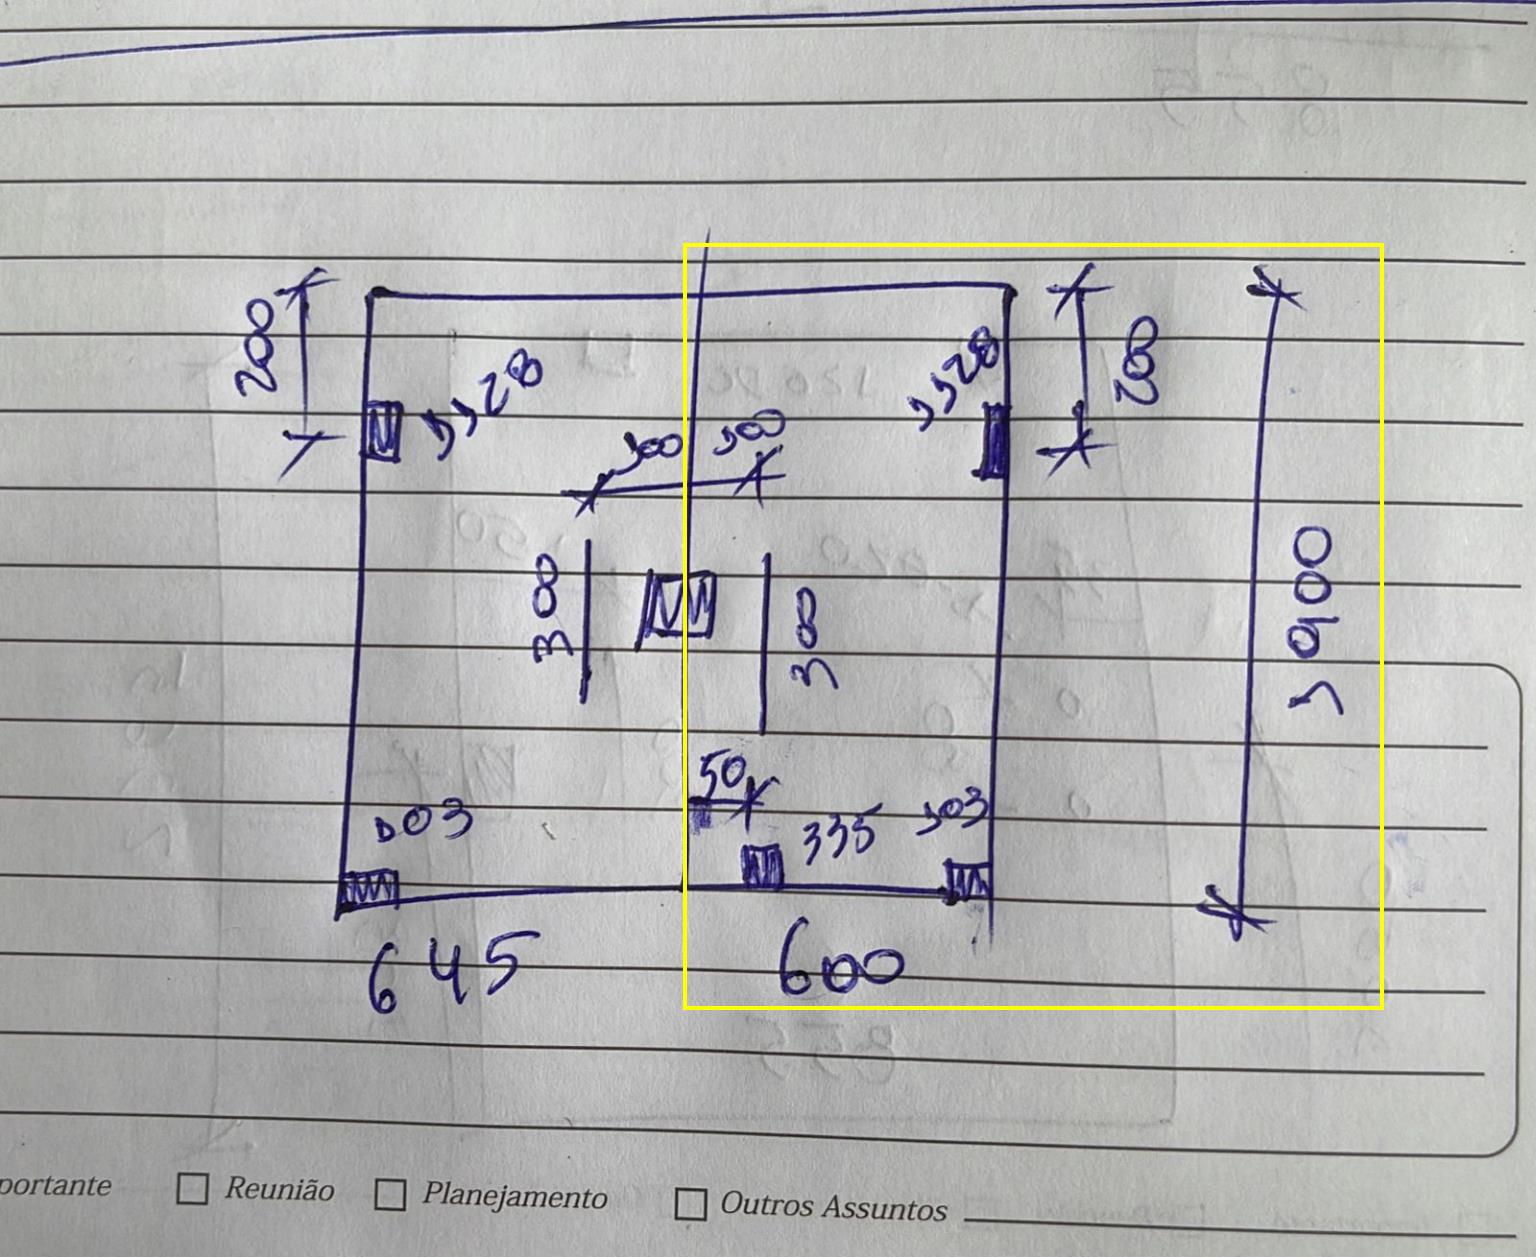 200
1128
1128
200
100 100
308
308
1900
50
103
335
103
645
600
portante
Reunião
Planejamento
Outros Assuntos